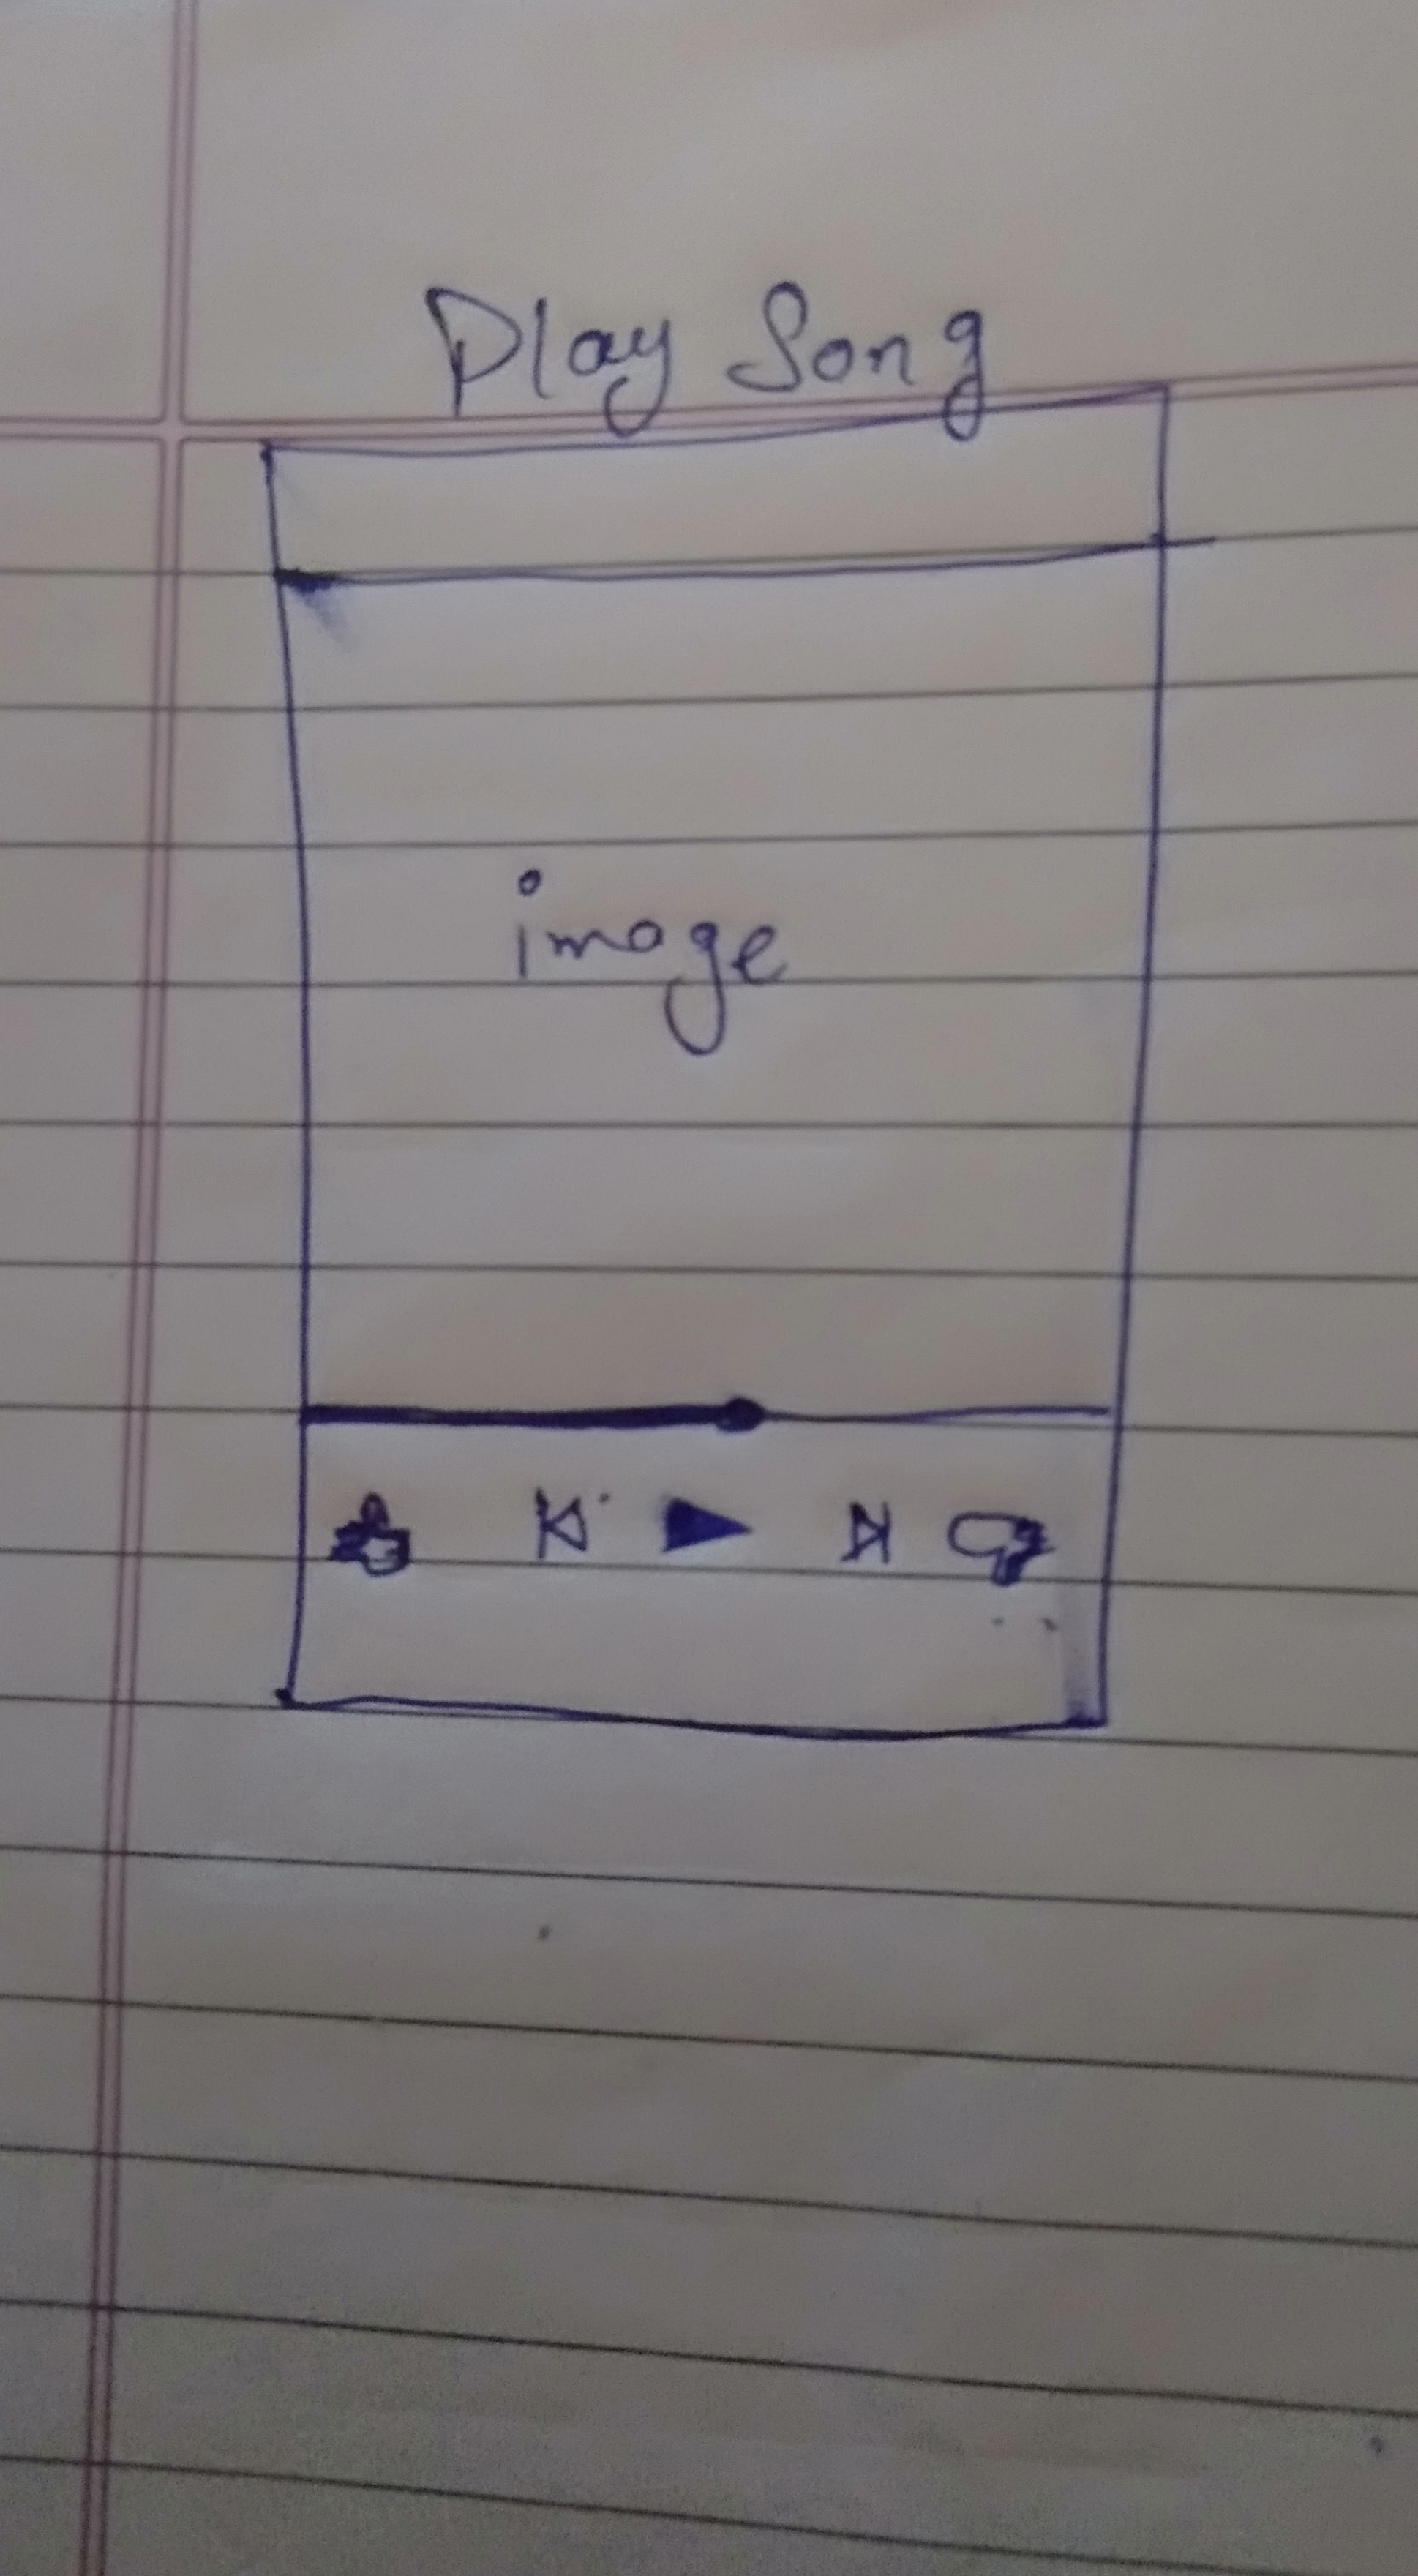 Play Song
image